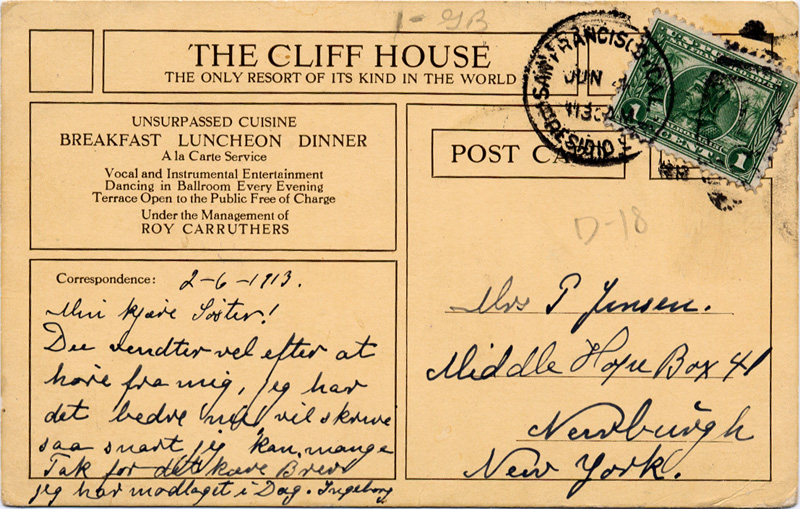 1-GB
THE CLIFF HOUSE
THE ONLY RESORT OF ITS KIND IN THE WORLD
SAN FRANCISCO, CAL.
JUN
1130A
PRESIDIO
1 CENT 1
UNSURPASSED CUISINE
BREAKFAST LUNCHEON DINNER
A la Carte Service
Vocal and Instrumental Entertainment
Dancing in Ballroom Every Evening
Terrace Open to the Public Free of Charge
Under the Management of
ROY CARRUTHERS
POST CA
D-18
Correspondence: 2-6-1913.
Min kjære Søster!
Du vendter vel efter at
høre fra mig, jeg har
det bedre nu, vil skrive
saa snart jeg kan, mange
Tak for det kære Brev
jeg har modtaget i Dag. Ingeborg
Mrs P Jensen.
Middle Hope Box 41
Newburgh
New York.